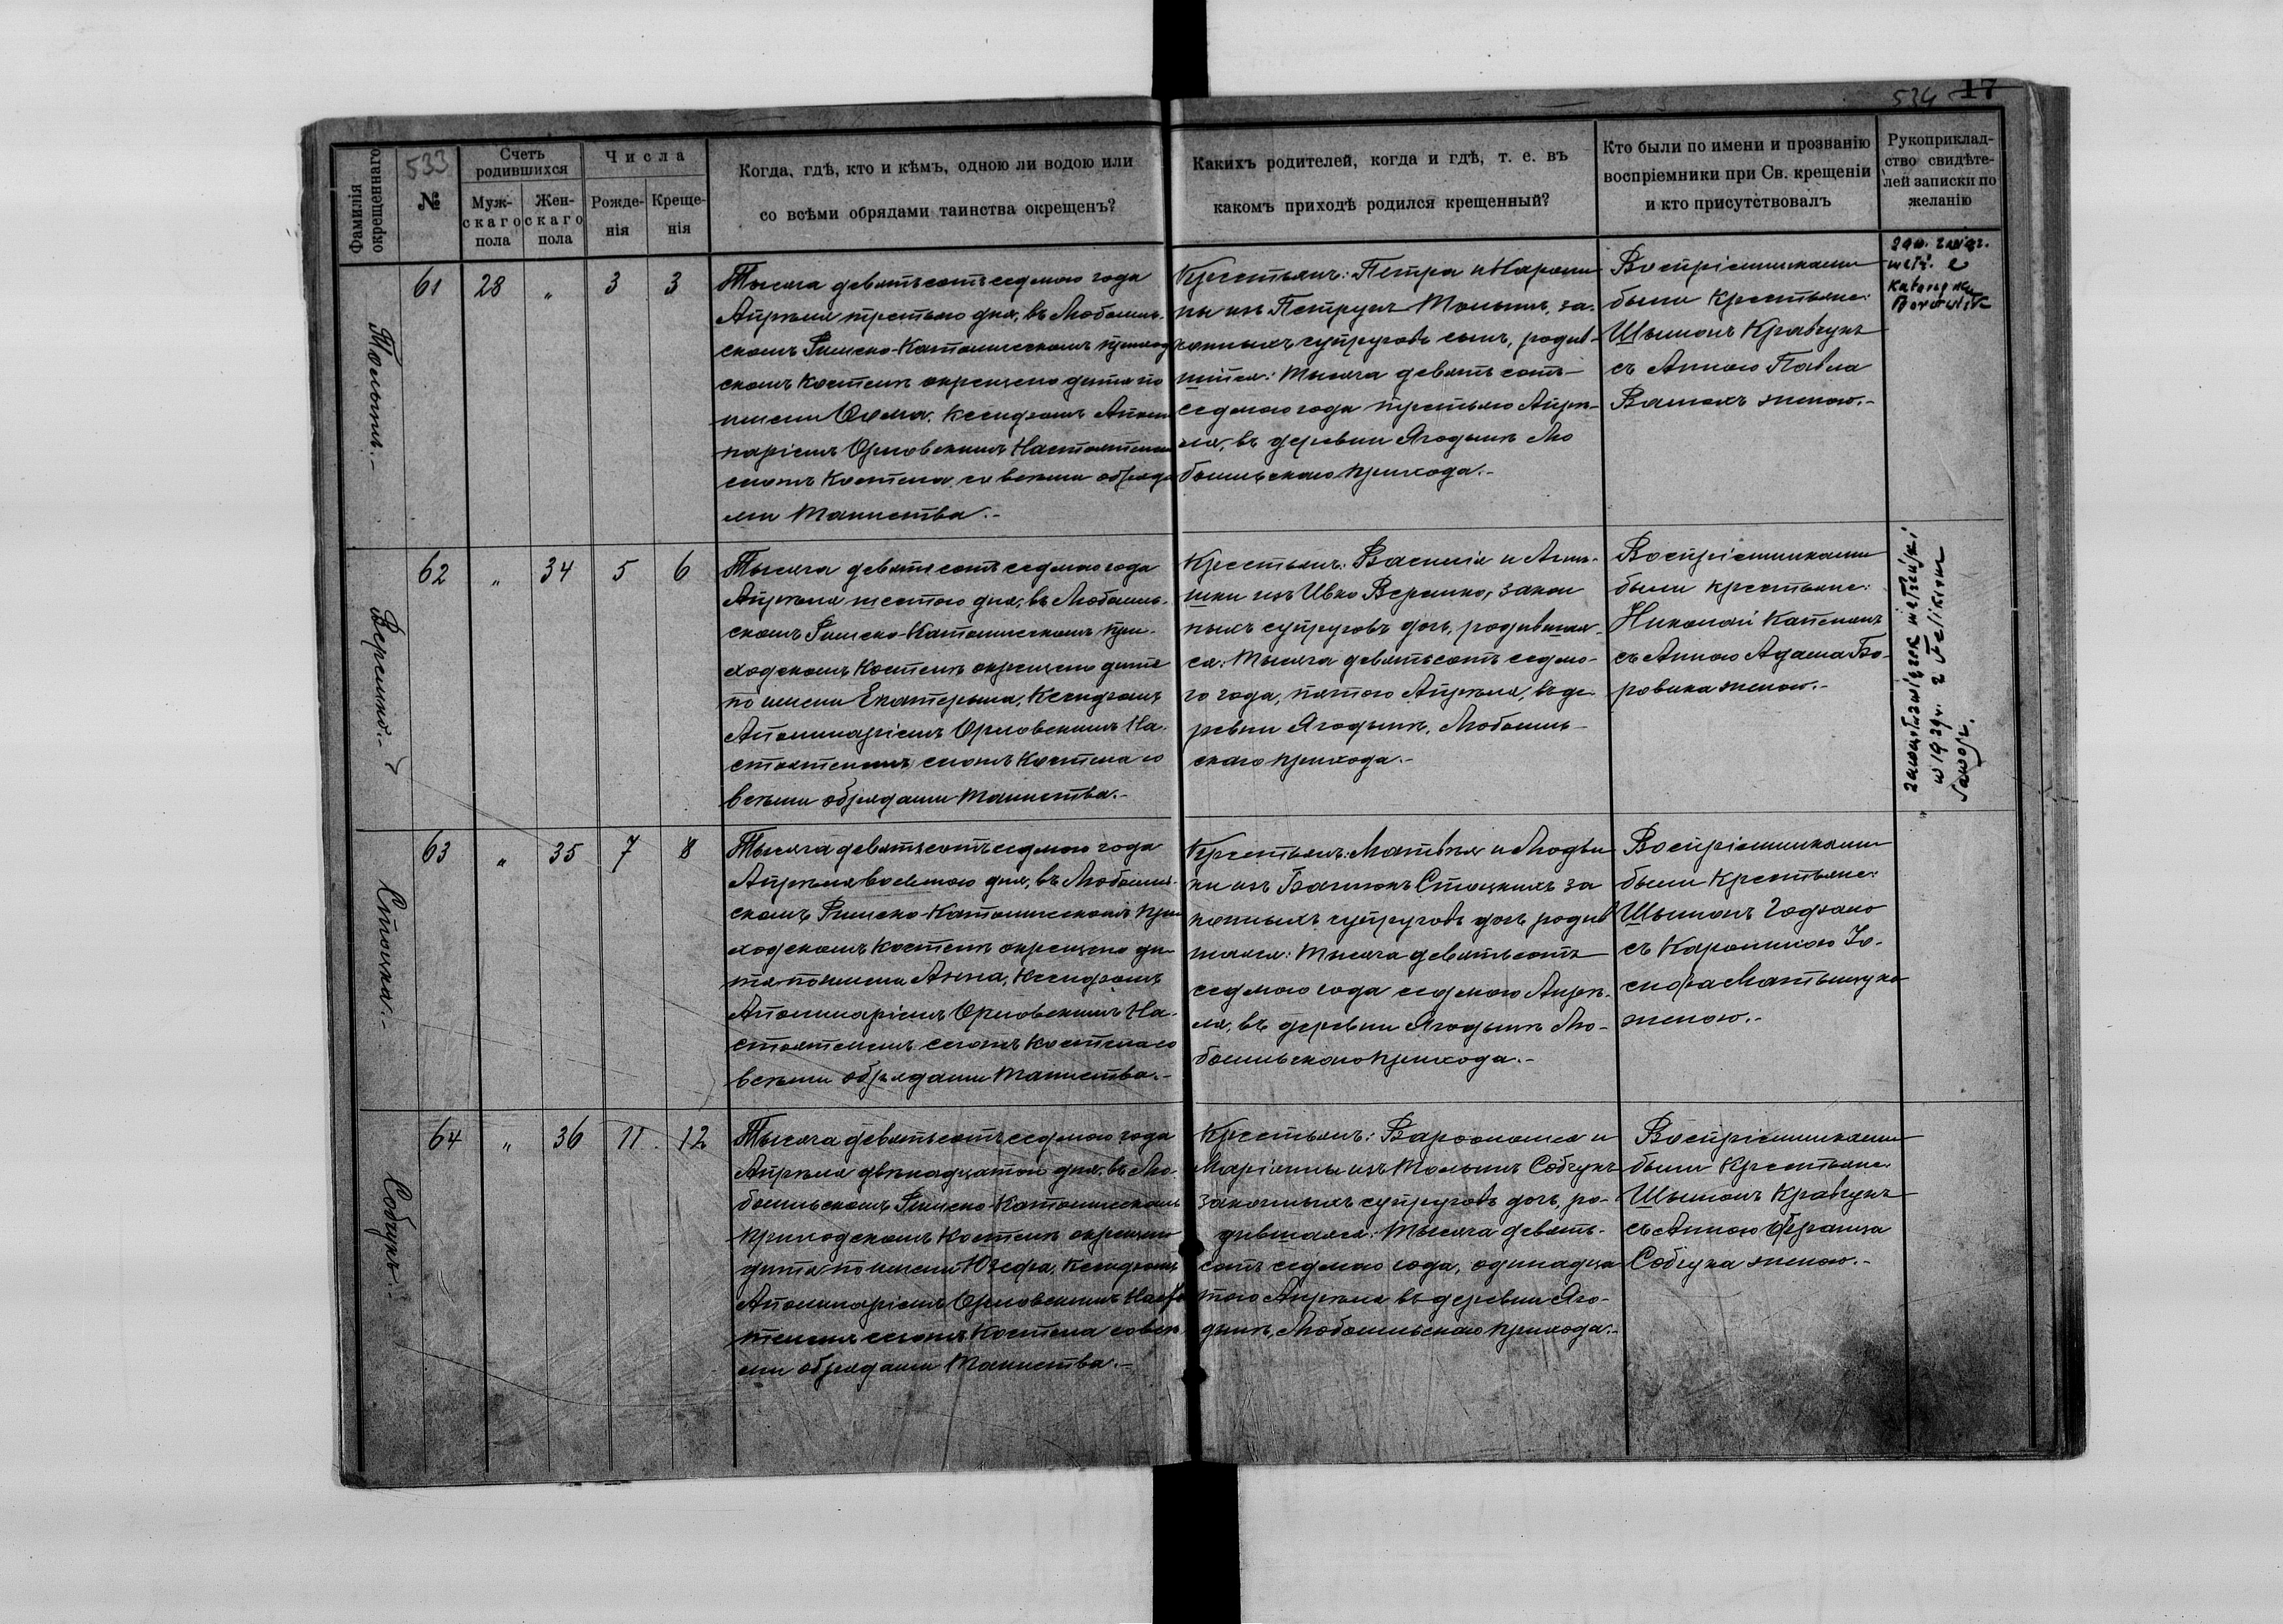 533
534 17
Фамилія окрещеннаго
№
Счетъ родившихся
Муж-скаго пола
Жен-скаго пола
Числа
Рожде-нія
Креще-нія
Когда, гдѣ, кто и кѣмъ, одною ли водою или
со всѣми обрядами таинства окрещенъ?
Какихъ родителей, когда и гдѣ, т. е. въ
какомъ приходѣ родился крещенный?
Кто были по имени и прозванію
воспріемники при Св. крещеніи
и кто присутствовалъ
Рукоприклад-
ство свидѣте-
лей записки по
желанію
61 28 „ 3 3
Тысяча девятьсотъ седмого года
Апрѣля третьяго дня, въ Любомль-
скомъ Римско-Католическомъ приход
скомъ Костелѣ окрещено дитя по
имени Ксендзомъ Аполи
наріемъ Орловскимъ Настоятелемъ
сегожъ Костела со всѣми обряда
ми Таинства.-
Крестьянъ: Петра и Кароли
ны изъ за-
конныхъ супруговъ сынъ, родив-
шійся: Тысяча девятьсотъ-
седмого года третьяго Апрѣ-
ля, въ деревни Ягодынѣ Лю
бомльскаго прихода.-
Воспріемниками
были Крестьяне:
Шымонъ Кравчукъ
съ Анною Павла
женою.-
zaw. związ.
małż. z
Katarzyną
62 „ 34 5 6
Веремко.-
Тысяча девятьсотъ седмого года
Апрѣля шестого дня, въ Любомль-
скомъ Римско-Католическомъ при-
ходскомъ Костелѣ окрещено дитя
по имени Екатерына, Ксендзомъ
Аполинаріемъ Орловскимъ На-
стоятелемъ сегожъ Костела со
всѣми обрядами Таинства.-
Крестьянъ: Василія и Агнѣ-
шки изъ Ивко Веремко, закон
ныхъ супруговъ дочь, родившая-
ся: Тысяча девятьсотъ седмо-
го года, пятого Апрѣля, въ де-
ревни Ягодынѣ, Любомль-
скаго прихода.-
Воспріемниками
были крестьяне:
Николай
съ Анною Адама Бо-
ровика женою.-
zawarł związek małżeński
w 1929 r. z Feliksem
63 „ 35 7 8
Стоцкая.-
Тысяча девятьсотъ седмого года
Апрѣля восьмого дня, въ Любомль-
скомъ Римско-Католическомъ при
ходскомъ Костелѣ окрещено ди-
тя по имени Анна, Ксендзомъ
Аполинаріемъ Орловскимъ На-
стоятелемъ сегожъ Костела со
всѣми обрядами Таинства.-
Крестьянъ: Матвѣя и Людви
ки изъ Стоцкихъ за
конныхъ супруговъ дочь родив
шаяся: Тысяча девятьсотъ
седмого года седмого Апрѣ-
ля, въ деревни Ягодынѣ Лю-
бомльскаго прихода.-
Воспріемниками
были Крестьяне:
Шымонъ
съ Каролиною Іо-
сифа
женою.-
64 „ 36 11 12
Собчукъ.-
Тысяча девятьсотъ седмого года
Апрѣля двѣнадцатого дня, въ Лю-
бомльскомъ Римско-Католическомъ
приходскомъ Костелѣ окрещено
дитя по имени Юзефа, Ксендзомъ
Аполинаріемъ Орловскимъ Настоя
телемъ сегожъ Костела со всѣ
ми обрядами Таинства.-
Крестьянъ: Варѳоломея и
Маріанны изъ Собчукъ
законныхъ супруговъ дочь, ро-
дившаяся: Тысяча девять-
сотъ седмого года, одинадца
того Апрѣля въ деревни Яго-
дынѣ, Любомльскаго прихода.-
Воспріемниками
были Крестьяне:
Шымонъ Кравчукъ
съ Анною Франца
Собчука женою.-